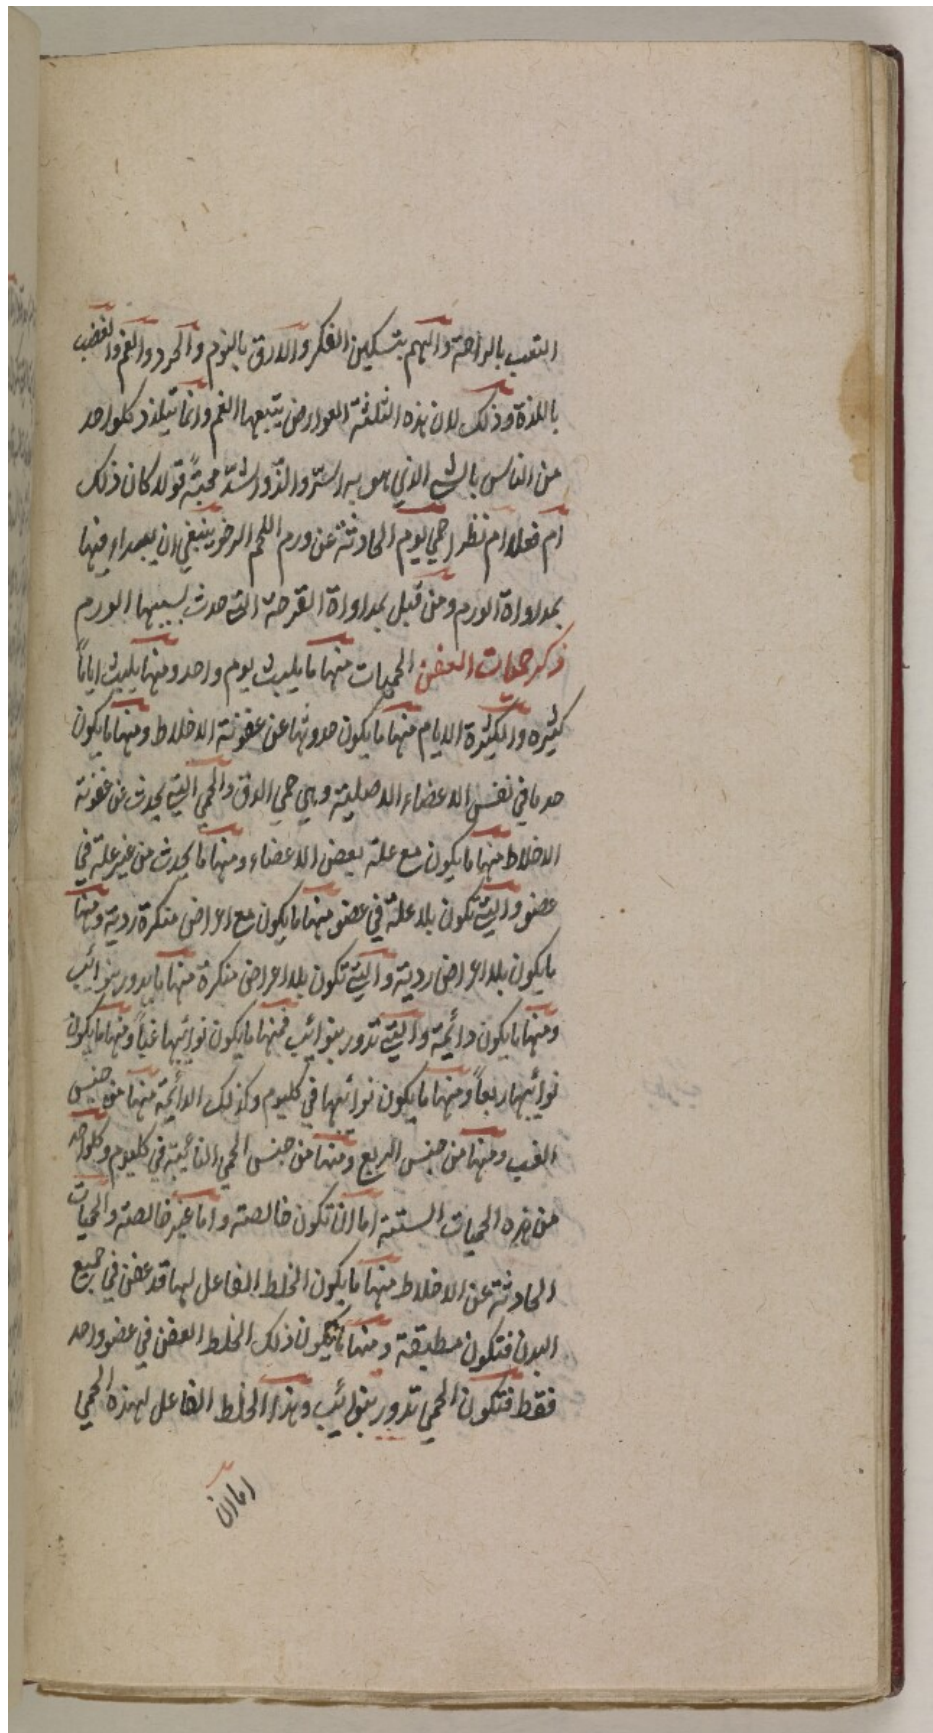 التعب بالراحة والهم بتسكين الفكر والارق بالنوم والحرد والغم والغضب
باللذة وذلك لان هذه الثلثة العوارض يتبعها الغم وانما يتلذذ كلواحد
من الناس بالشي الذي هو به اسر والذ واشد محبةً قولا كان ذلك
ام فعلا ام نظرا حمي يوم الحادثة عن ورم اللحم الرخو ينبغي ان يبدا فيها
بمداواة الورم ومن قبل بمداواة القرحة التي حدث بسببها الورم
ذكر حميات العفن الحميات منها ما يلبث يوم واحد ومنها يلبث اياماً
كثيره والكثيرة الايام منها ما يكون حدوثها عن عفونة الاخلاط ومنها ما يكون
حدها في نفس الاعضاء الاصلية وهي حمي الدق والحمي التي يحدث عن عفونة
الاخلاط منها ما يكون مع علة بعض الاعضاء ومنها ما يحدث من غير علة في
عضو والتي تكون بلا علة في عضو منها ما يكون مع اعراض منكرة ردية ومنها
ما يكون بلا اعراض ردية والتي تكون بلا اعراض منكرة منها ما يدور بنوائب
ومنها ما يكون دائمة والتي تدور بنوائب فمنها ما يكون نوائبها غباً ومنها ما يكون
نوائبها ربعاً ومنها ما يكون نوائبها في كليوم وكذلك الدائمة منها من جنس
الغب ومنها من جنس الربع ومنها من جنس الحمي النائبة في كليوم وكلواحد
من هذه الحميات الستة اما ان تكون خالصة واما غير خالصة والحميات
الحادثة عن الاخلاط منها ما يكون الخلط الفاعل لها قد عفن في جميع
البدن فتكون مطبقة ومنها ما يكون ذلك الخلط العفن في عضو واحد
فقط فتكون الحمي تدور بنوائب وهذا الخلط الفاعل لهذه الحمي
اما ان